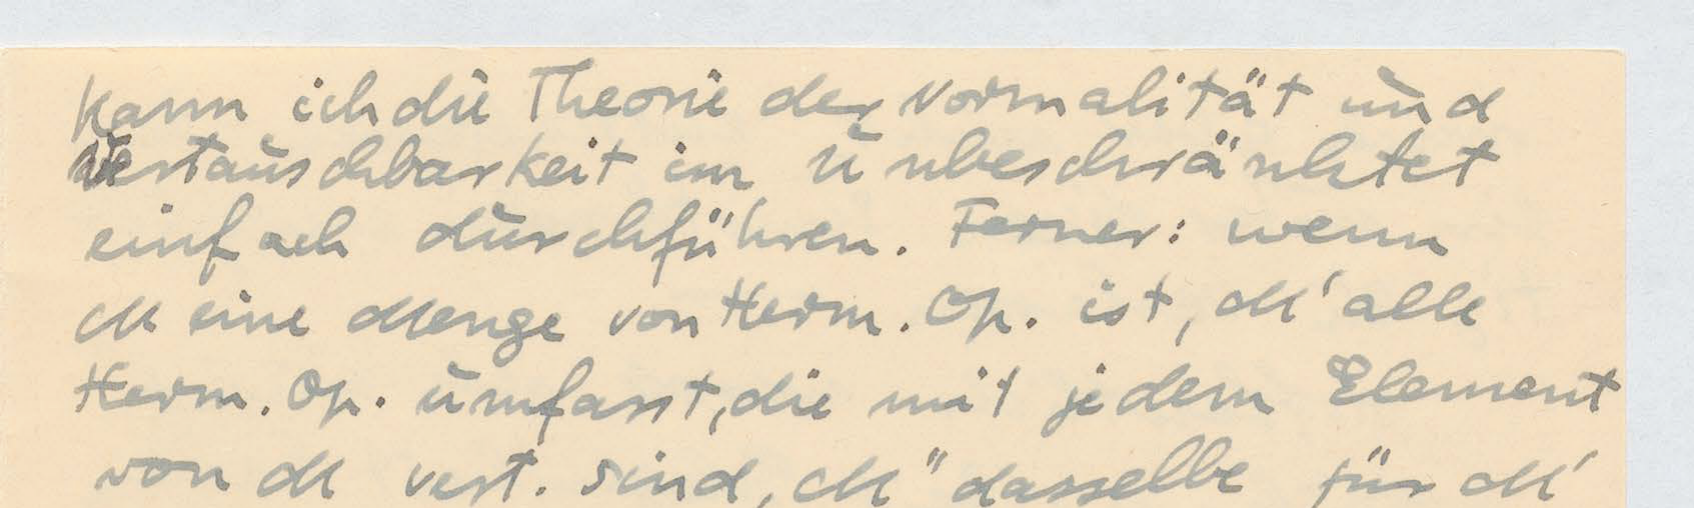 kann ich die Theorie der Normalität und
Vertauschbarkeit im Unbeschränktet
einfach durchführen. Ferner: wenn
M eine Menge von Herm. Op. ist, M' alle
Herm. Op. umfasst, die mit jedem Element
von M vert. sind, M" dasselbe für M'